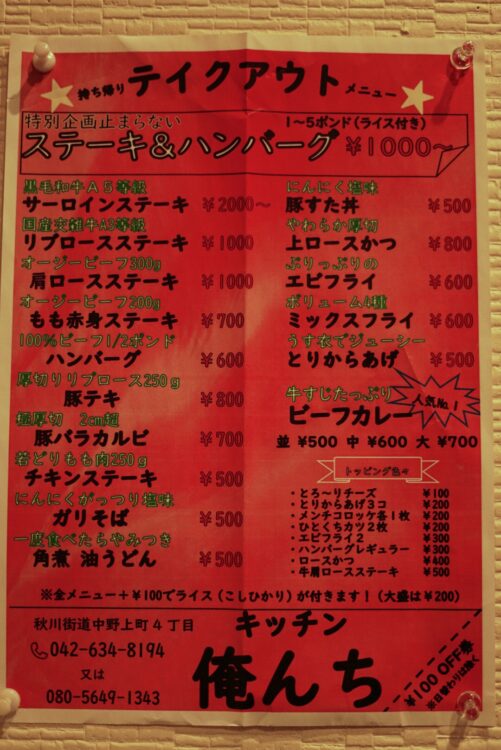 持ち帰り テイクアウト メニュー
特別企画止まらない
ステーキ&ハンバーグ
1〜5ポンド(ライス付き)
¥1000〜
黒毛和牛A5等級
サーロインステーキ ¥2000〜
国産交雑牛A3等級
リブロースステーキ ¥1000
オージービーフ300g
肩ロースステーキ ¥1000
オージービーフ200g
もも赤身ステーキ ¥700
100%ビーフ1/2ポンド
ハンバーグ ¥600
厚切りリブロース250g
豚テキ ¥800
極厚切 2cm超
豚バラカルビ ¥700
若どりもも肉250g
チキンステーキ ¥500
にんにくがっつり塩味
ガリそば ¥500
一度食べたらやみつき
角煮 油うどん ¥500
にんにく塩味
豚すた丼 ¥500
やわらか厚切
上ロースかつ ¥800
ぷりっぷりの
エビフライ ¥600
ボリューム4種
ミックスフライ ¥600
うす衣でジューシー
とりからあげ ¥500
牛すじたっぷり
ビーフカレー
人気No.1
並 ¥500 中 ¥600 大 ¥700
トッピング色々
・とろ〜りチーズ ¥100
・とりからあげ3コ ¥200
・メンチコロッケ各1枚 ¥200
・ひとくちカツ2枚 ¥200
・エビフライ2 ¥300
・ハンバーグレギュラー ¥300
・ロースかつ ¥400
・牛肩ロースステーキ ¥500
※全メニュー+¥100でライス(こしひかり)が付きます!(大盛は¥200)
秋川街道中野上町4丁目
042-634-8194
又は
080-5649-1343
キッチン
俺んち
¥100 OFF券
※日替わりは除く